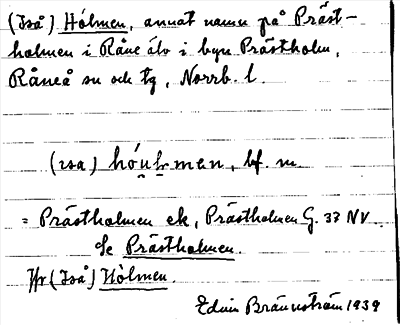 (Iså) Hólmen, annat namn på Präst-
holmen i Råne älv i byn Prästholm,
Råneå sn och tg, Norrb. l.
(ɪsa) hóu̯lmen, bf. m
= Prästholmen ek, Prästholmen G. 33 NV
Se Prästholmen.
Jfr (Iså) Hòlmen.
Edvin Brännström 1939